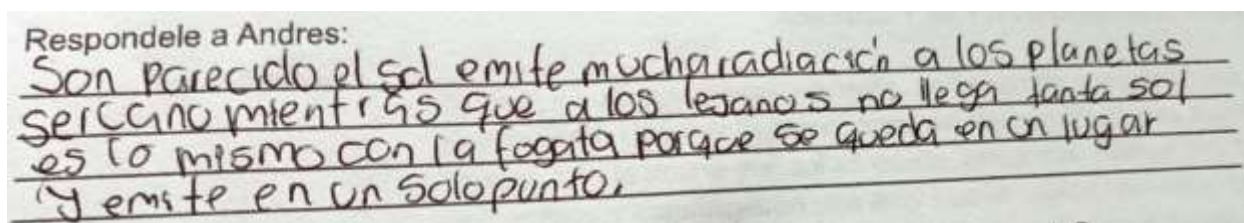 Respondele a Andres:
Son parecido el sol emite mucha radiación a los planetas
sercano mientras que a los lejanos no llega tanta sol
es lo mismo con la fogata porque se queda en un lugar
y emite en un solo punto.